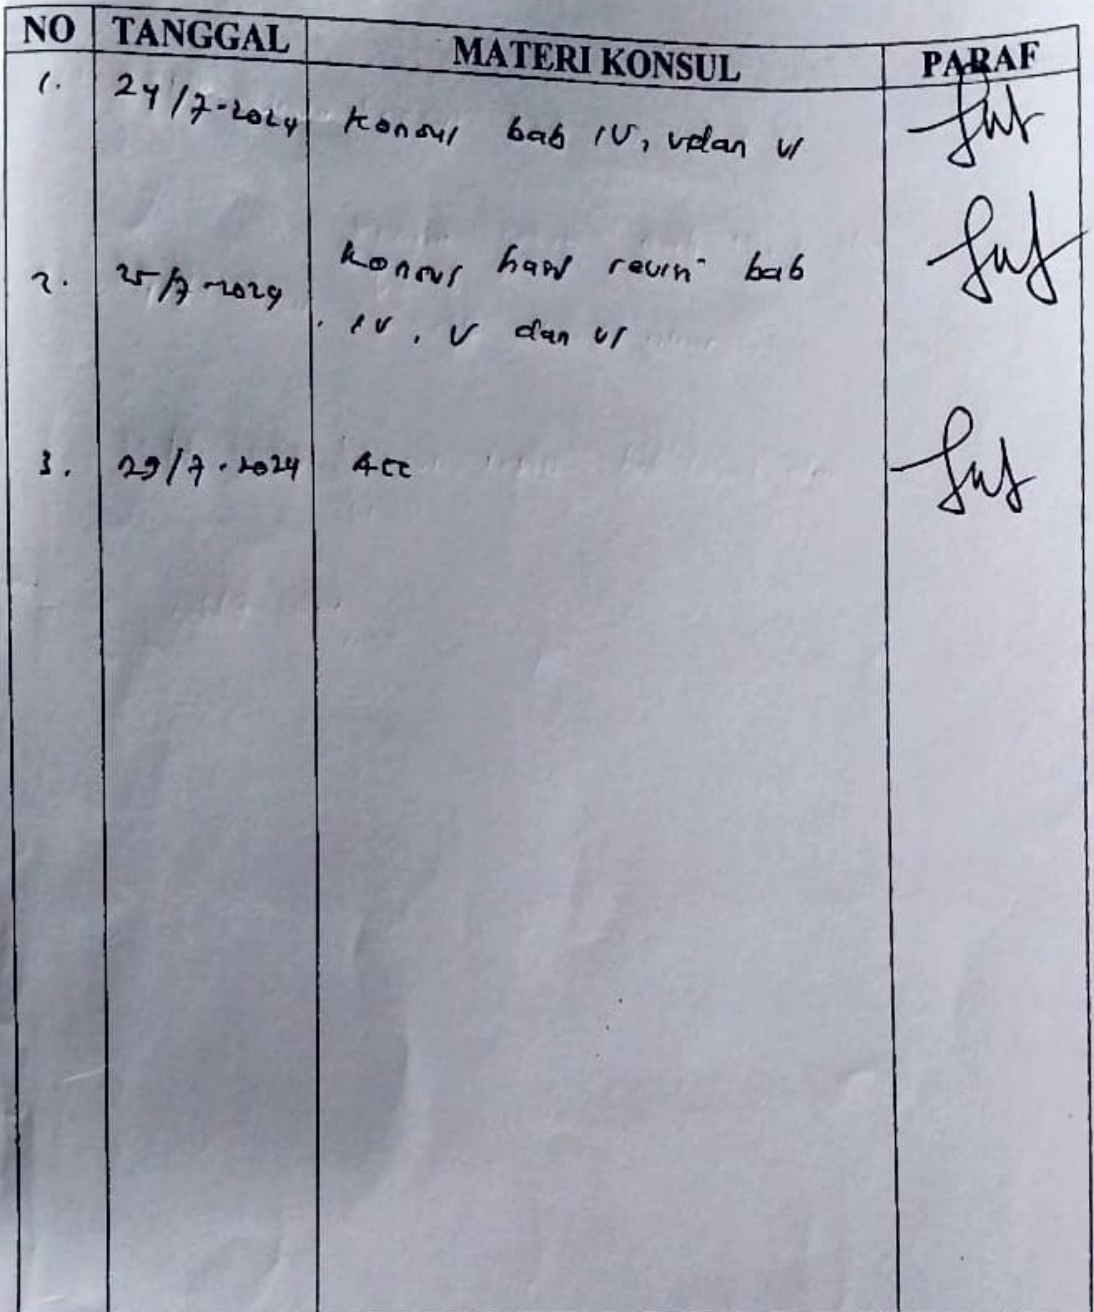 NO TANGGAL MATERI KONSUL PARAF
1. 24/7-2024 Konsul bab IV, V dan VI
2. 25/7-2024 Konsul hasil revisi bab
IV, V dan VI
3. 29/7-2024 Acc